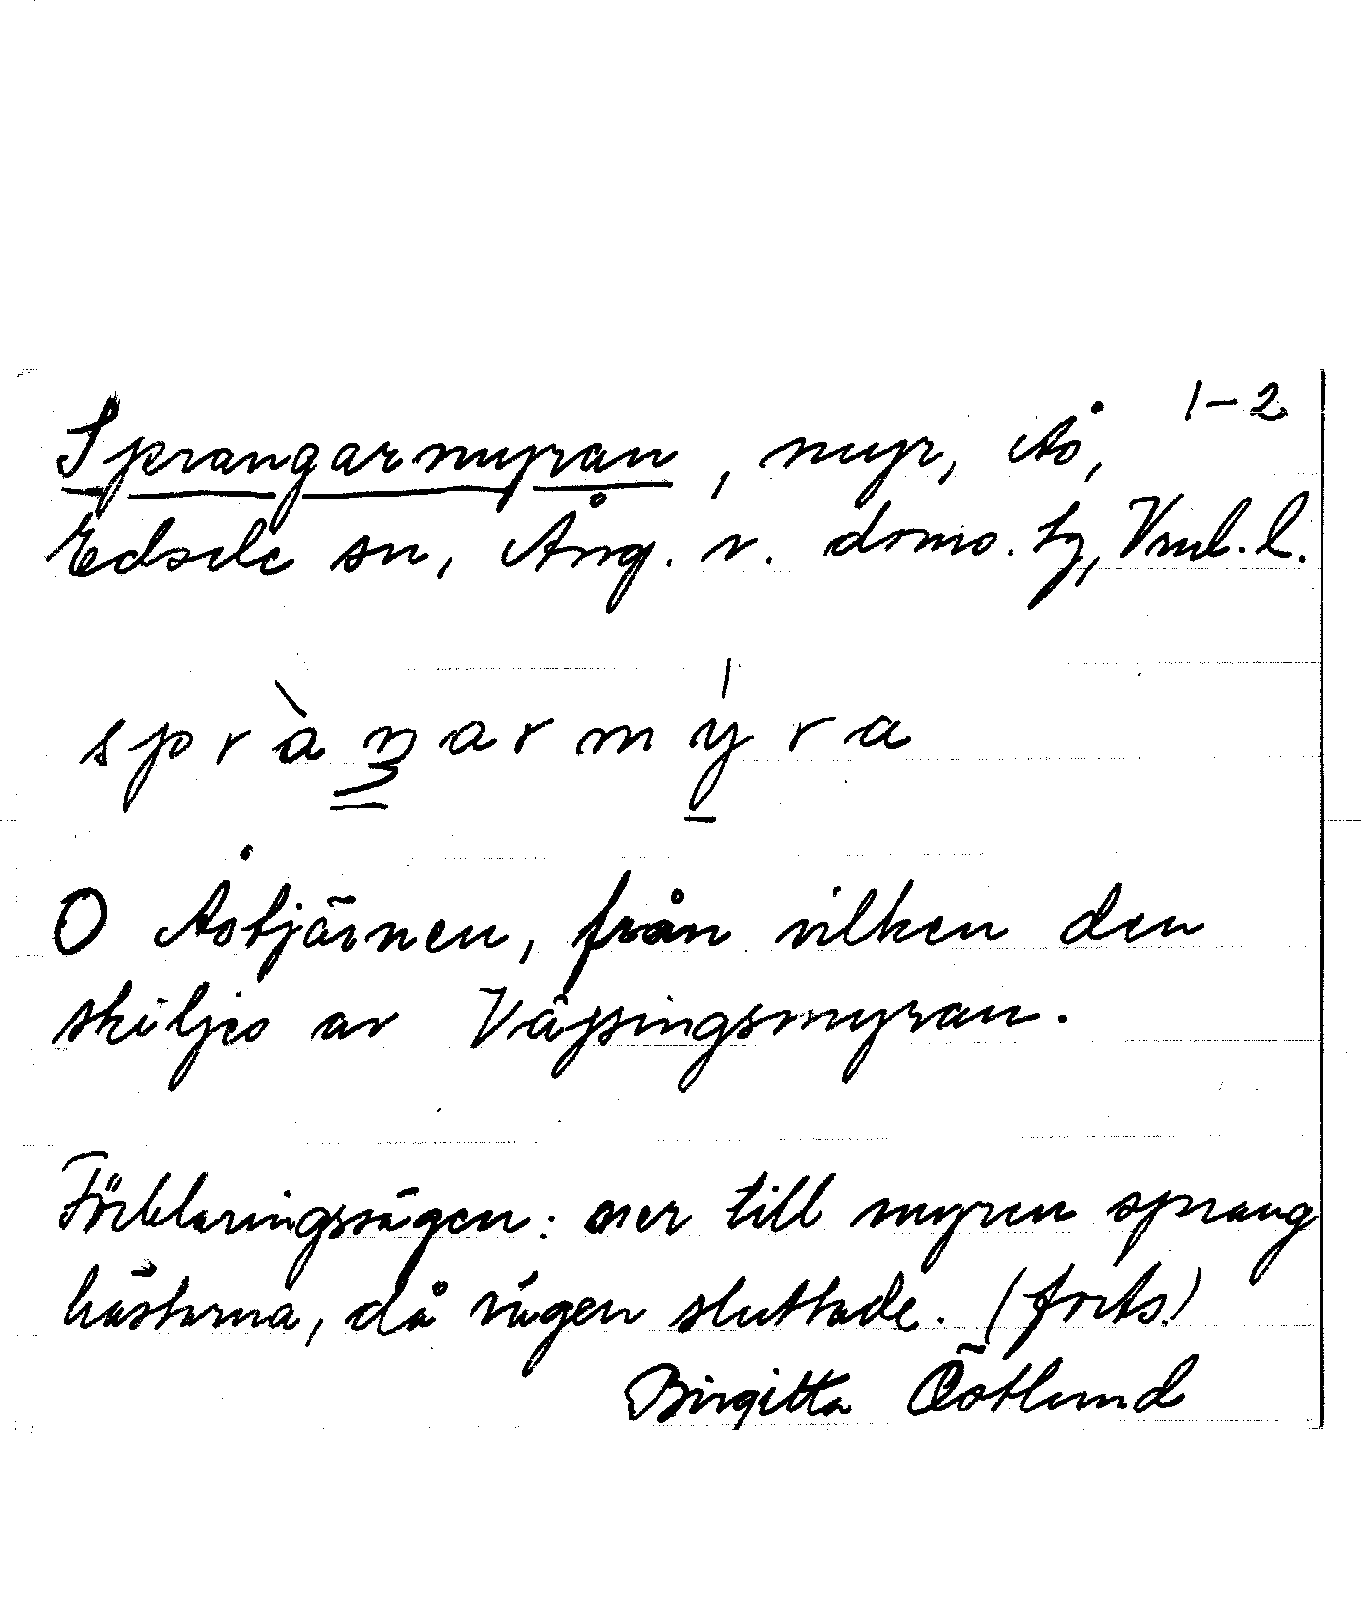 1-2
Sprangarmyran, myr, Ås,
Edsele sn, Ång. v. doms. tg, Vnl. l.
spràŋarmýra
O Åstjärnen, från vilken den
skiljes av Väpsingsmyran.
Förklaringssägen: ner till myren sprang
hästarna, då vägen sluttade. (forts.)
Birgitta Östlund